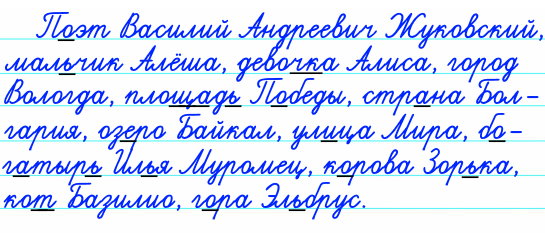 Поэт Василий Андреевич Жуковский,
мальчик Алёша, девочка Алиса, город
Вологда, площадь Победы, страна Бол-
гария, озеро Байкал, улица Мира, бо-
гатырь Илья Муромец, корова Зорька,
кот Базилио, гора Эльбрус.